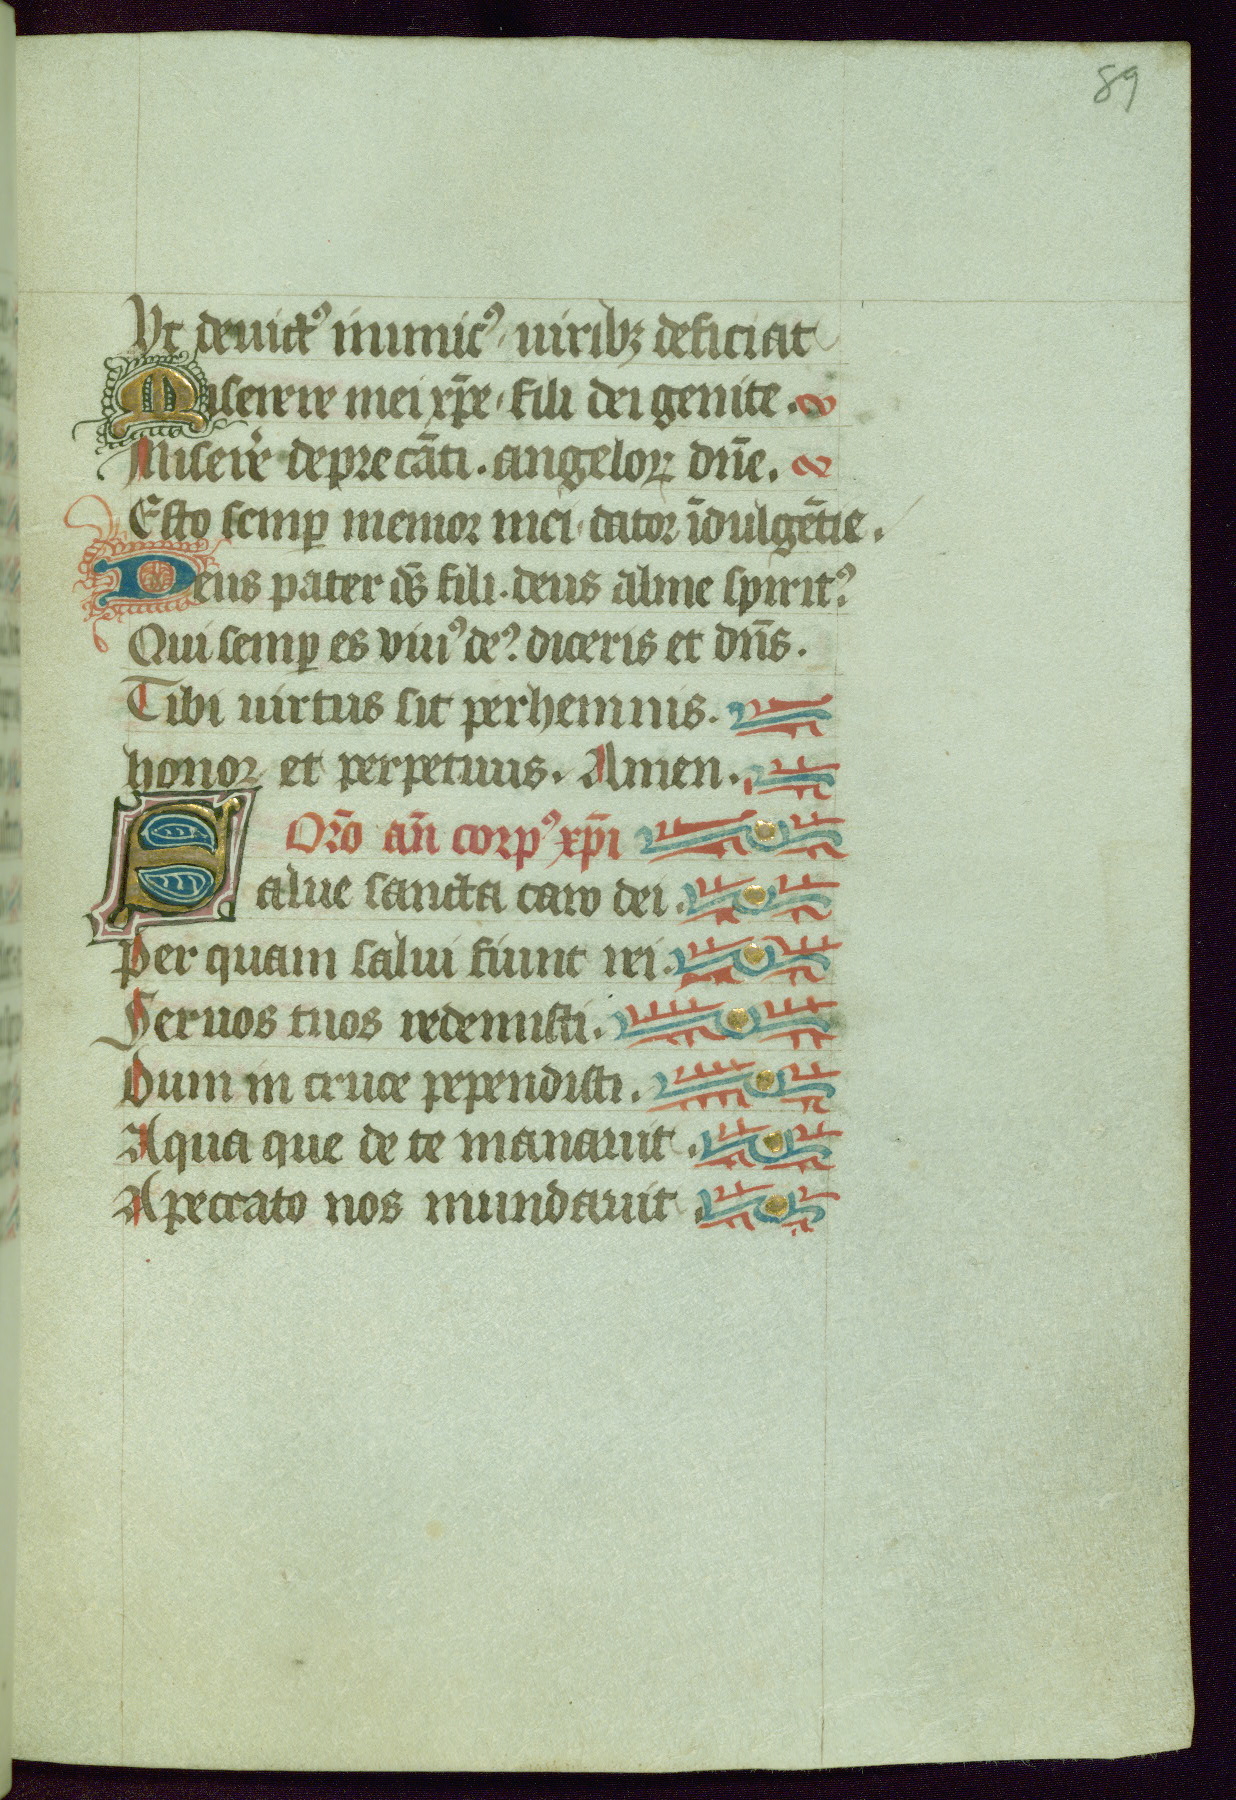 89
Ut deuictꝰ inimicꝰ, uiribꝫ deficiat
Miserere mei xp̄e, fili dei genite.
Miserēr deprecāti. angeloꝝ dn̄e.
Esto semꝑ memor mei, dator īdulgētie.
Deus pater ds̄ fili. deus alme spiritꝰ
Qui semꝑ es viuꝰ deꝰ diceris et dn̄s.
Tibi uirtus sit perhemnis.
honor et perpetuus. Amen.
Or̄o an̄ corpꝰ xp̄i
Salue sancta caro dei.
Per quam salui fiunt rei.
Seruos tuos redemisti.
Dum in cruce pependisti.
Aqua que de te manauit.
A peccato nos mundauit